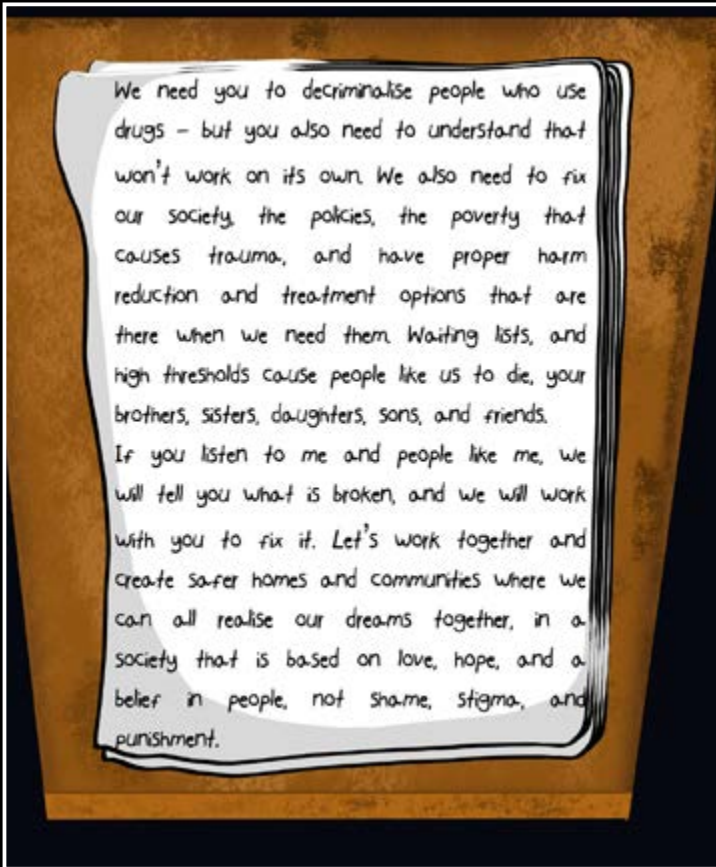 We need you to decriminalise people who use
drugs - but you also need to understand that
won't work on its own. We also need to fix
our society, the policies, the poverty that
causes trauma, and have proper harm
reduction and treatment options that are
there when we need them. Waiting lists, and
high thresholds cause people like us to die, your
brothers, sisters, daughters, sons, and friends.
If you listen to me and people like me, we
will tell you what is broken, and we will work
with you to fix it. Let's work together and
create safer homes and communities where we
can all realise our dreams together, in a
society that is based on love, hope, and a
belief in people, not shame, stigma, and
punishment.